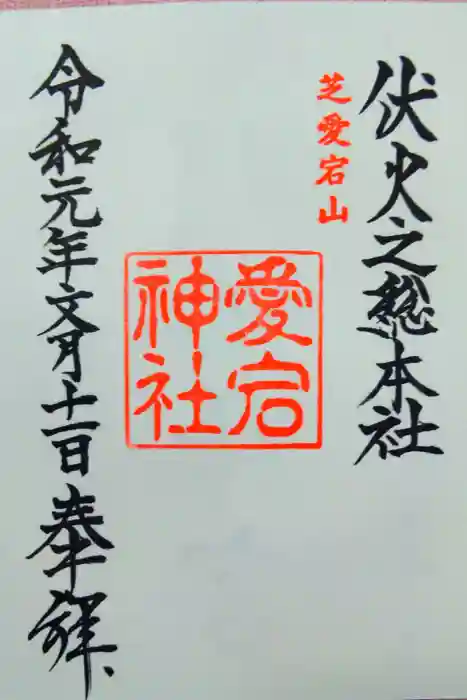 伏火之總本社
芝愛宕山
愛宕
神社
令和元年文月十一日奉拝